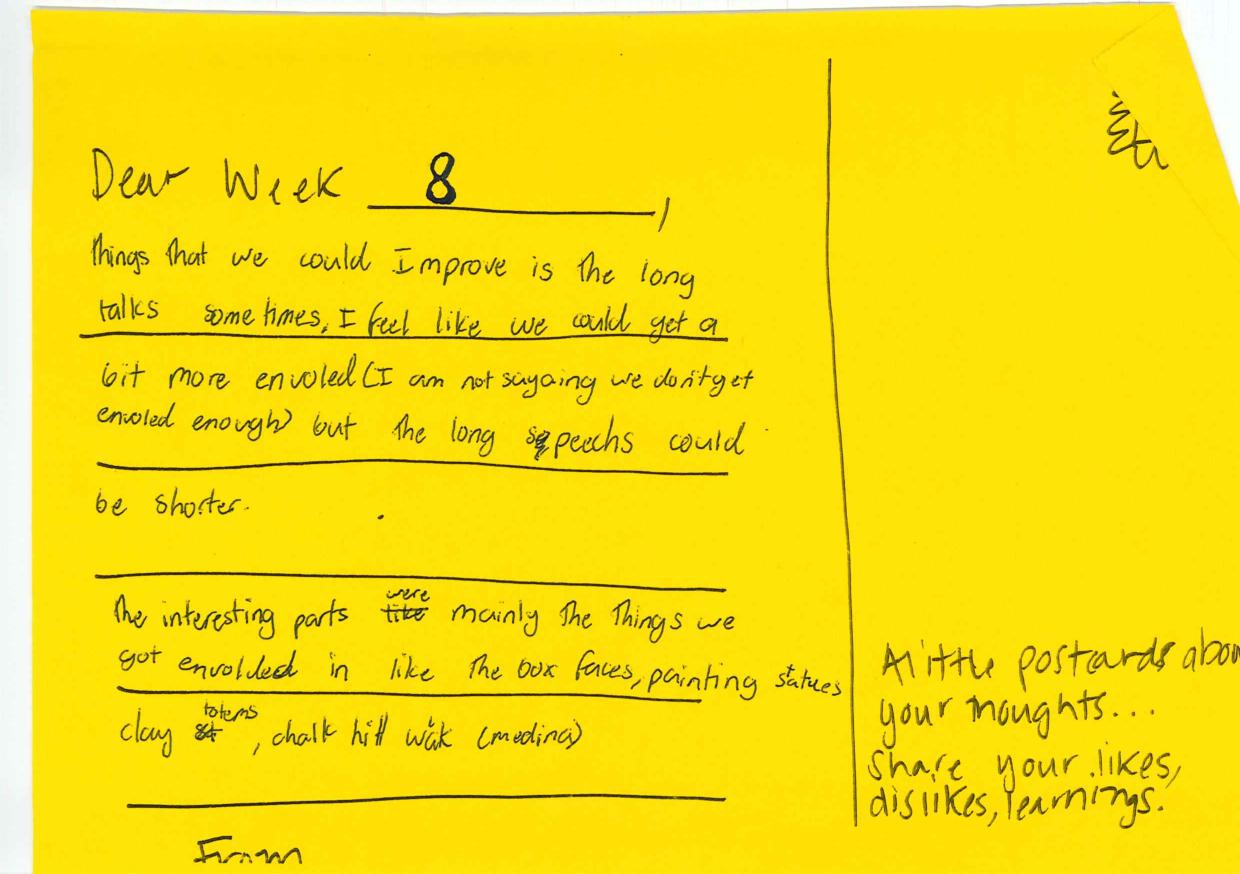 Dear Week 8,
Things that we could Improve is the long
talks sometimes. I feel like we could get a
bit more envoled (I am not sayaing we don't get
envoled enough) but the long speechs could
be shorter.
The interesting parts were mainly the things we
got envolded in like the box faces, painting statues
clay totems, chalk hill walk (medina)
From
A little postcards abou
your thoughts...
Share your likes,
dislikes, learnings.